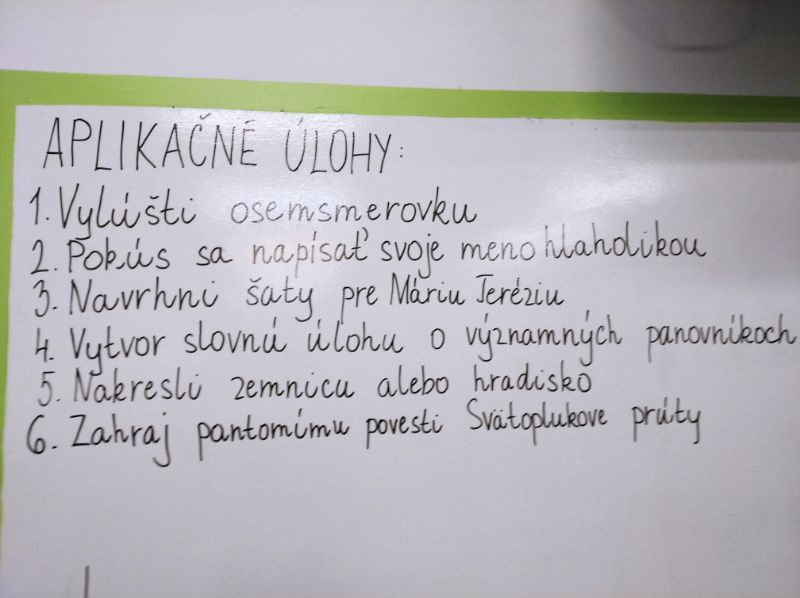 APLIKAČNÉ ÚLOHY:
1. Vylúšti osemsmerovku
2. Pokús sa napísať svoje meno hlaholikou
3. Navrhni šaty pre Máriu Teréziu
4. Vytvor slovnú úlohu o významných panovníkoch
5. Nakresli zemnicu alebo hradisko
6. Zahraj pantomímu povesti Svätoplukove prúty